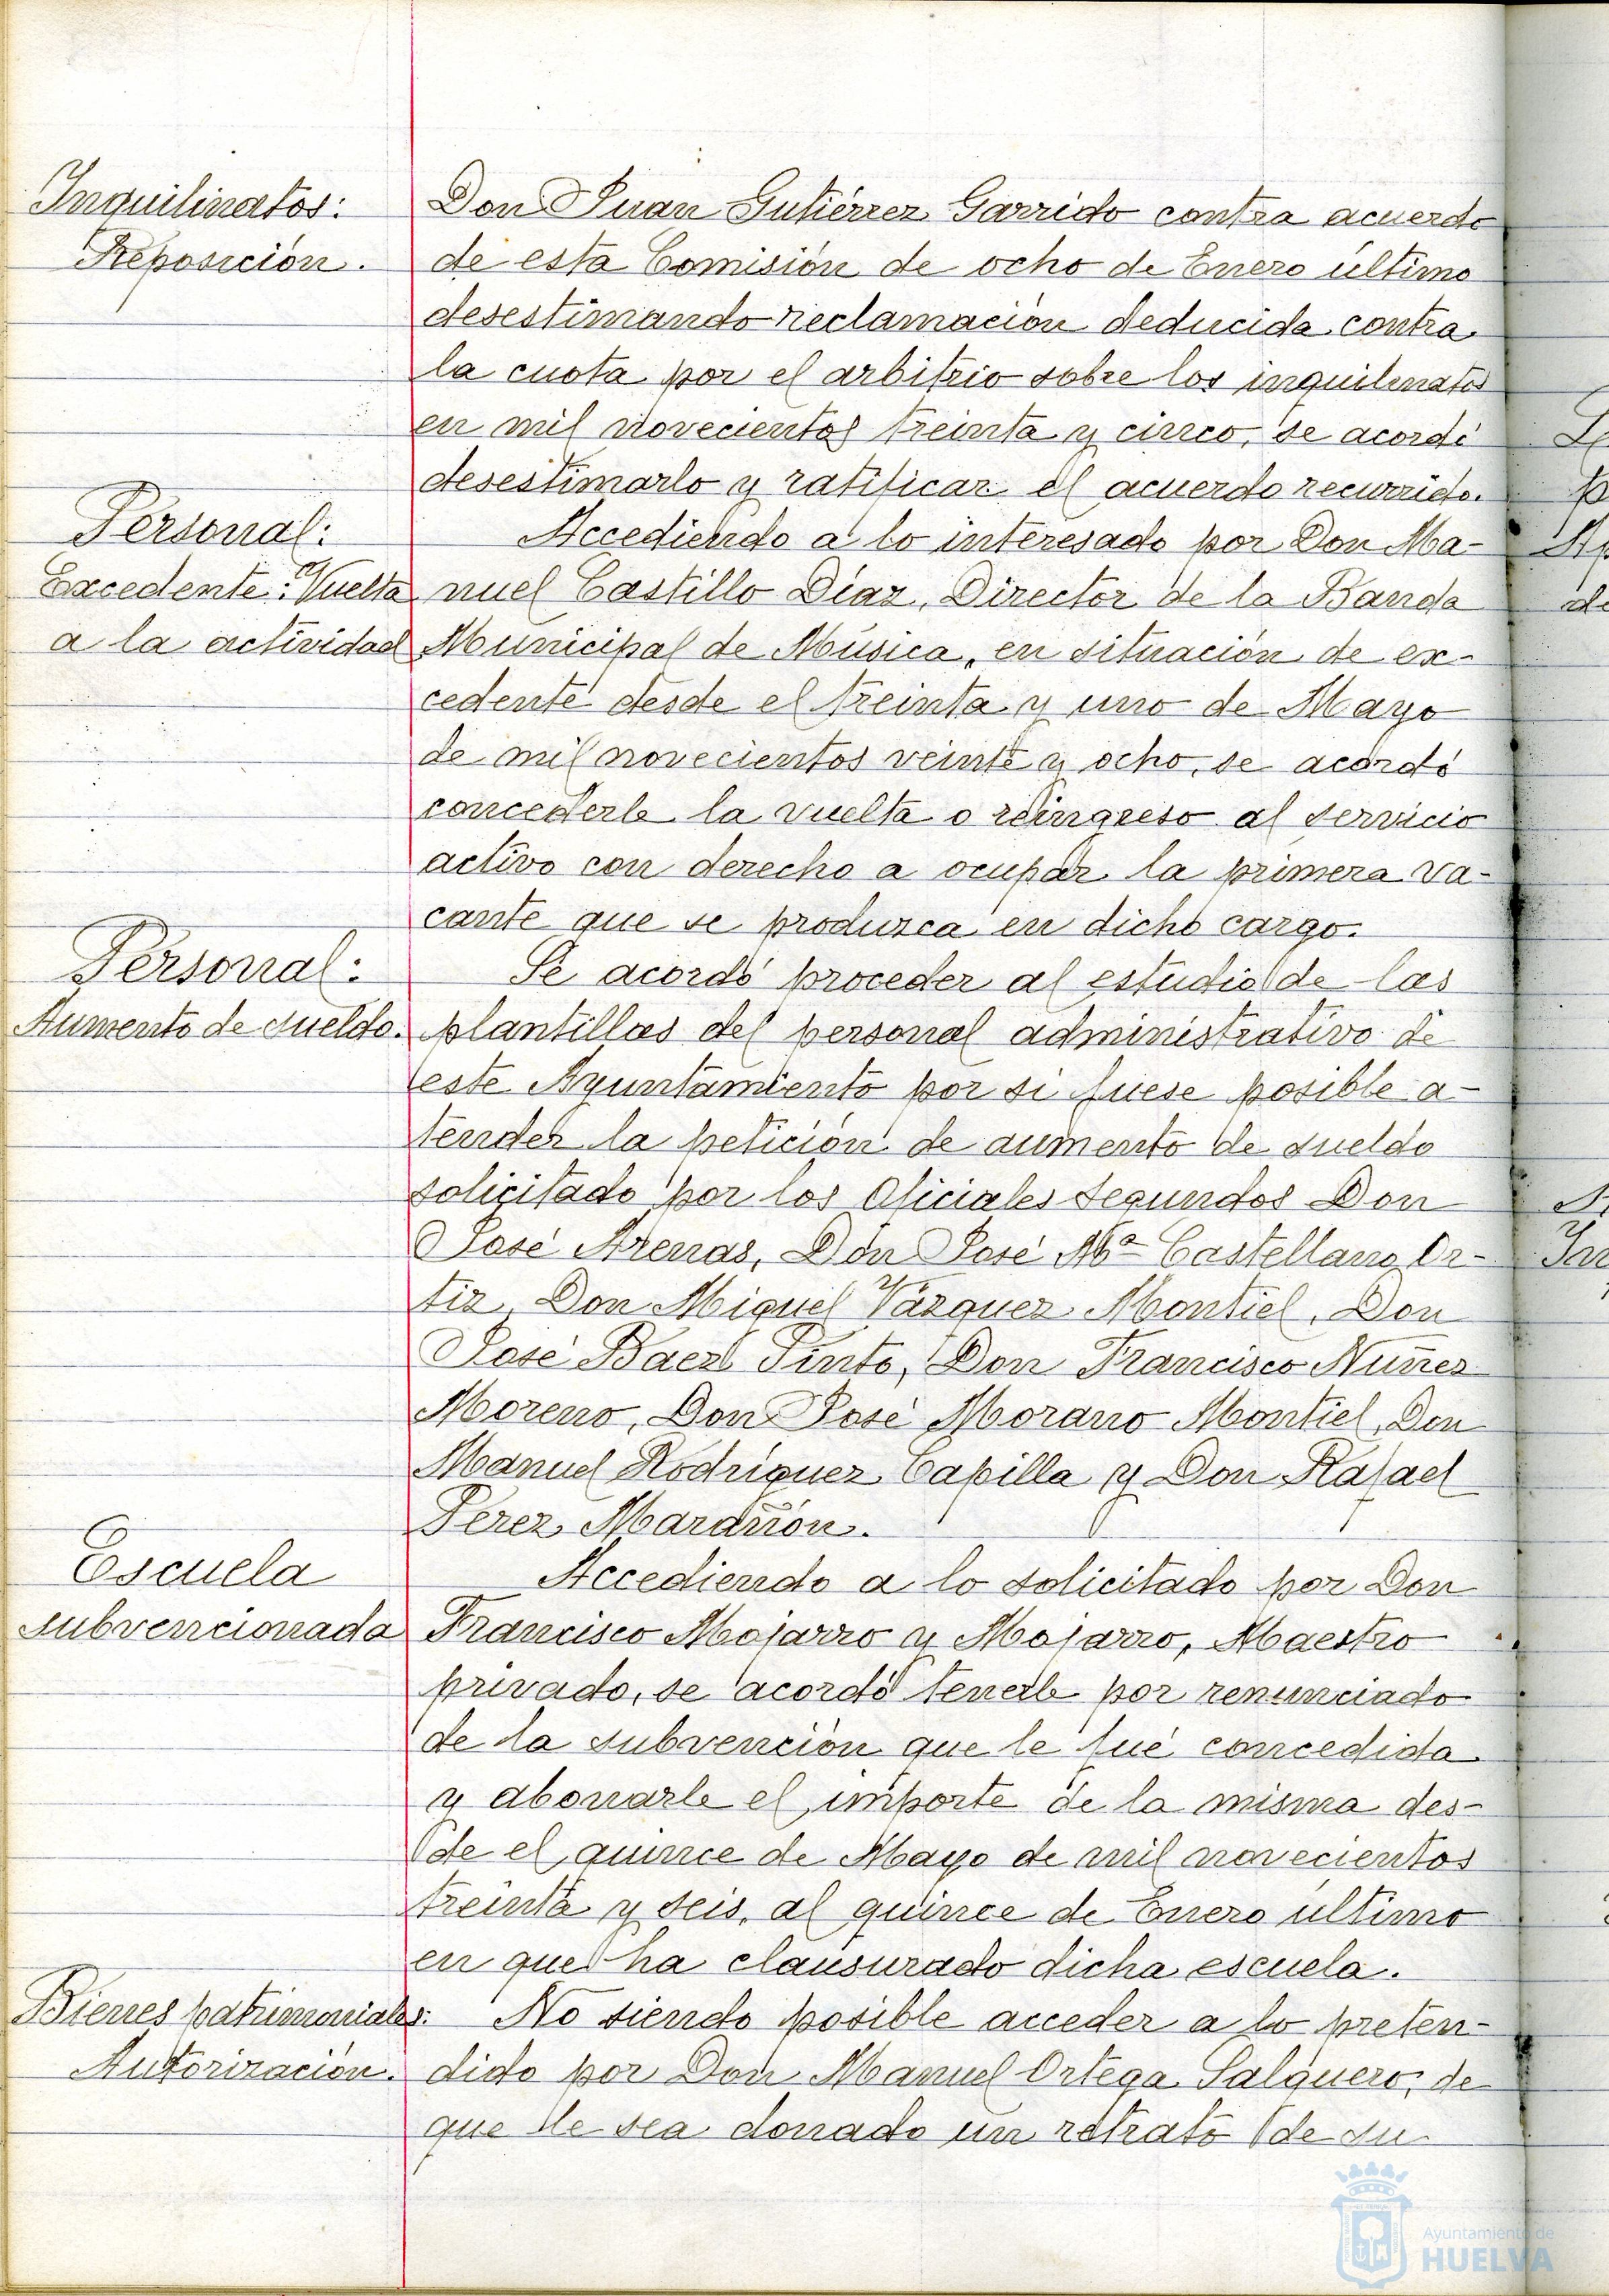 Inquilinatos:
Reposición.
Don Juan Gutiérrez Garrido contra acuerdo
de esta Comisión de ocho de Enero último
desestimando reclamación deducida contra
la cuota por el arbitrio sobre los inquilinatos
en mil novecientos treinta y cinco, se acordó
desestimarlo y ratificar el acuerdo recurrido.
Personal:
Excedente: Vuelta
a la actividad
Accediendo a lo interesado por Don Ma-
nuel Castillo Díaz, Director de la Banda
Municipal de Música, en situación de ex-
cedente desde el treinta y uno de Mayo
de mil novecientos veinte y ocho, se acordó
concederle la vuelta o reingreso al servicio
activo con derecho a ocupar la primera va-
cante que se produzca en dicho cargo.
Personal:
Aumento de sueldo.
Se acordó proceder al estudio de las
plantillas del personal administrativo de
este Ayuntamiento por si fuese posible a-
tender la petición de aumento de sueldo
solicitado por los Oficiales segundos Don
José Arenas, Don José Mª Castellano Or-
tiz, Don Miguel Vázquez Montiel, Don
José Baez Pinto, Don Francisco Nuñez
Moreno, Don José Morano Montiel, Don
Manuel Rodríguez Capilla y Don Rafael
Pérez Marañón.
Escuela
subvencionada
Accediendo a lo solicitado por Don
Francisco Mojarro y Mojarro, Maestro
privado, se acordó tenerle por renunciado
de la subvención que le fué concedida
y abonarle el importe de la misma des-
de el quince de Mayo de mil novecientos
treinta y seis, al quince de Enero último
en que ha clausurado dicha escuela.
Bienes patrimoniales:
Autorización.
No siendo posible acceder a lo preten-
dido por Don Manuel Ortega Salguero, de
que le sea donado un retrato de su
Ayuntamiento de
HUELVA